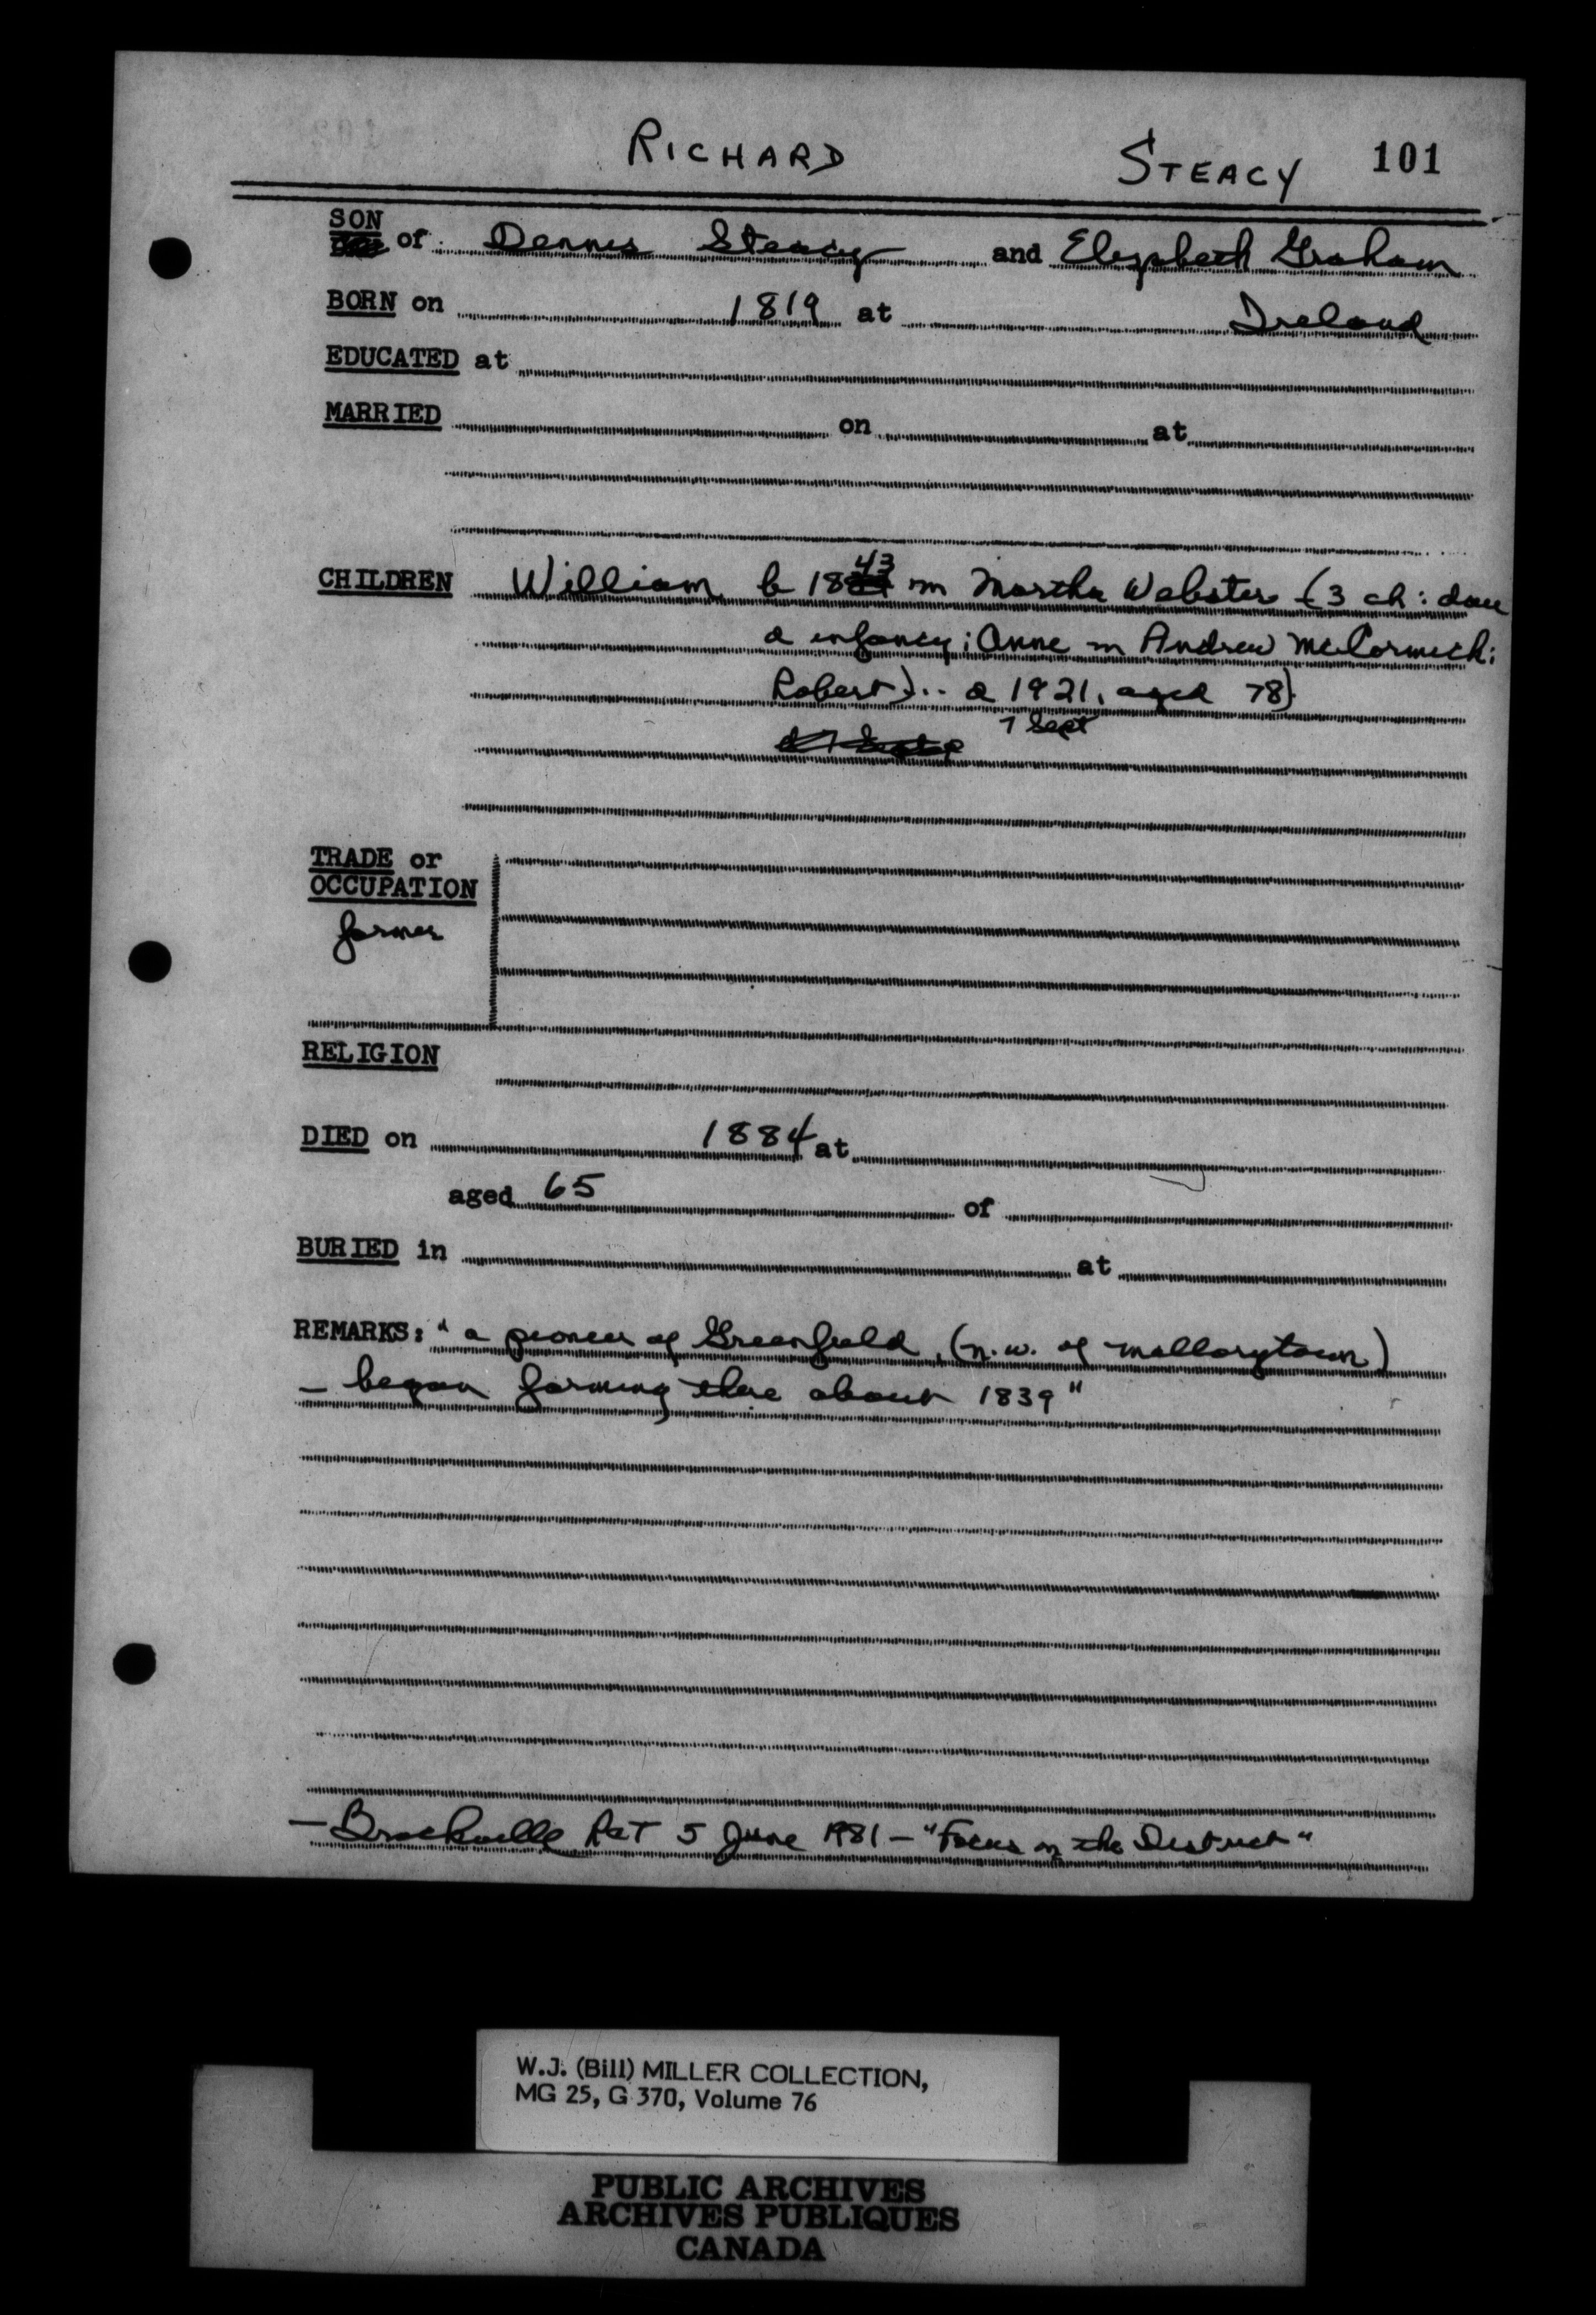 RICHARD STEACY 101
SON of Dennis Steacy and Elizabeth Graham
BORN on 1819 at Ireland
EDUCATED at
MARRIED on at
CHILDREN William b 1843 m Martha Webster (3 ch: dau
d infancy; Anne m Andrew McCormick;
Robert)... d 1921, aged 78)
7 Sept
TRADE or
OCCUPATION
farmer
RELIGION
DIED on 1884 at
aged 65 of
BURIED in at
REMARKS: "a pioneer of Greenfield, (n.w. of Mallorytown)
- began farming there about 1839"
- Brockville R&T 5 June 1981 - "Focus on the District"
W.J. (Bill) MILLER COLLECTION,
MG 25, G 370, Volume 76
PUBLIC ARCHIVES
ARCHIVES PUBLIQUES
CANADA